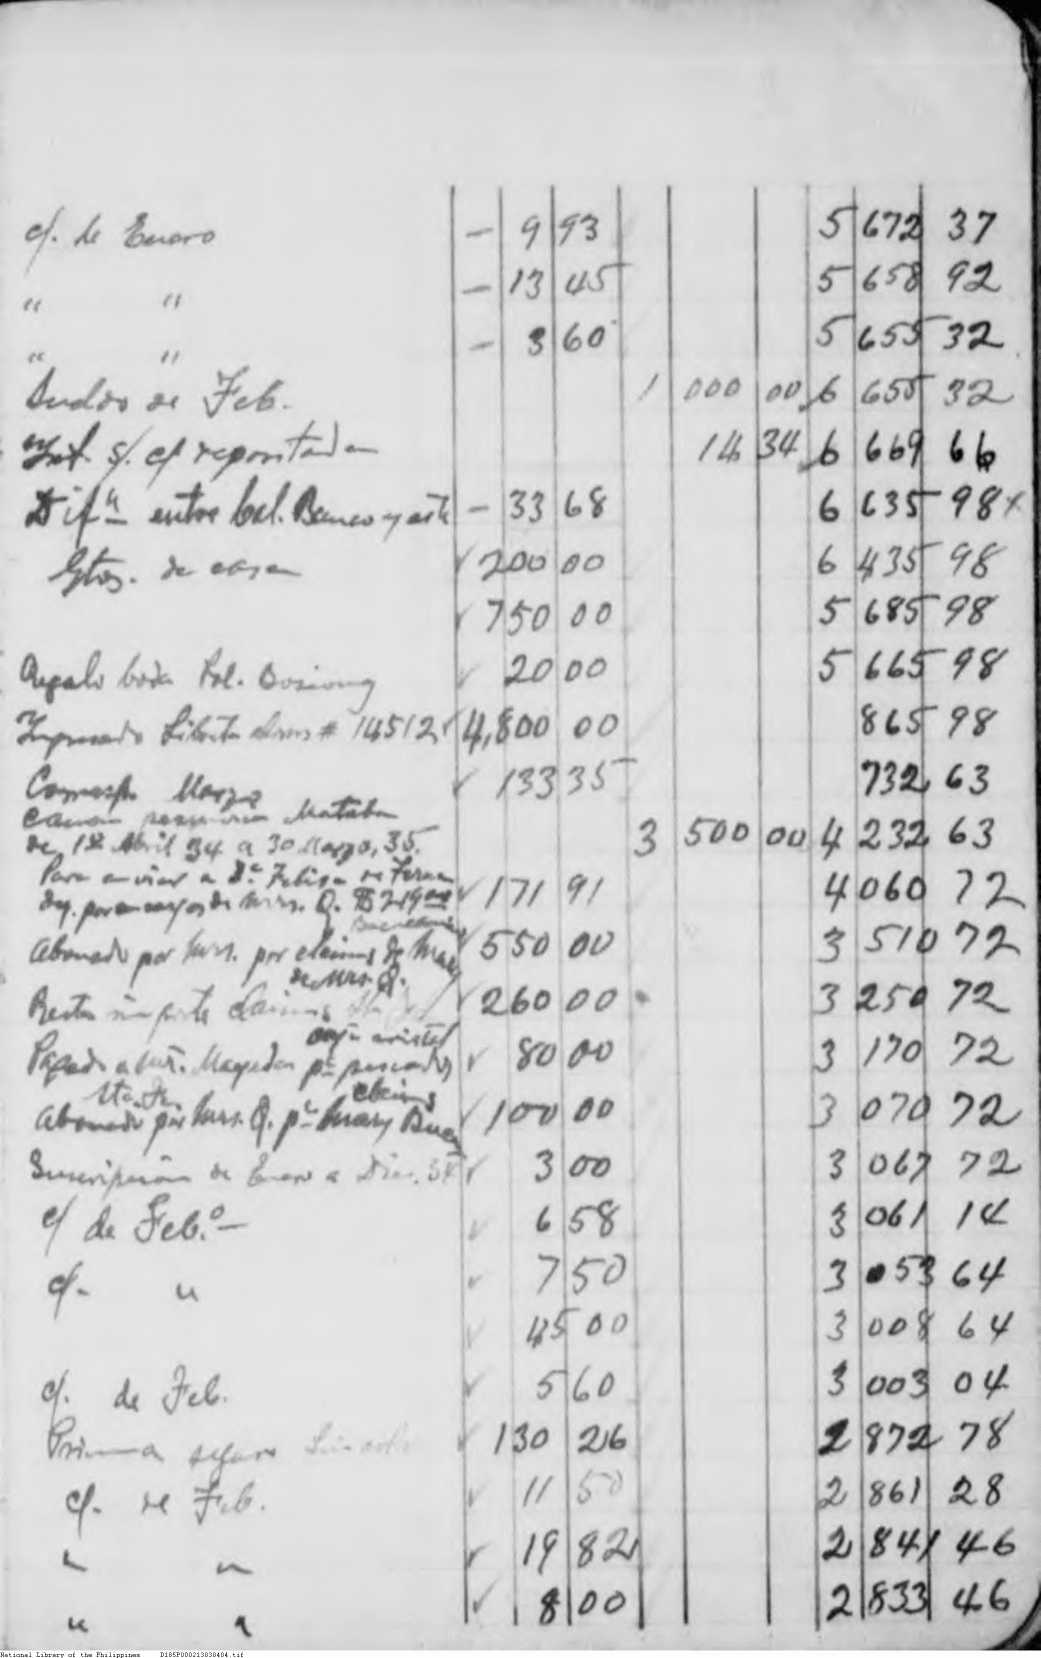 c/. de Enero - 9 93 5 672 37
" " - 13 45 5 658 92
" " - 3 60 5 655 32
Sueldo de Feb. 1 000 00 6 655 32
Int. s/. c/ 14 34 6 669 66
Difª entre bal. Banco y este - 33 68 6 635 98 x
Gtos. de casa √ 200 00 6 435 98
√ 750 00 5 685 98
Regalo boda Pol. √ 20 00 5 665 98
Ingresado # 14512 √ 4,800 00 865 98
√ 133 35 732 63
Canon Matab
de 1º Abril 34 a 30 Marzo, 35. 3 500 00 4 232 63
Para enviar a Dª. Felisa de
por encargos de Mrs. Q. √ 171 91 4 060 72
Abonado por Mrs. por claims de √ 550 00 3 510 72
de Mrs. Q.
Resto importe claims √ 260 00 3 250 72
Pagado a pª pescados √ 80 00 3 170 72
claims
Abonado por Mrs. Q. pª Mary √ 100 00 3 070 72
Suscripción de Enero a Dic. 34 √ 3 00 3 067 72
c/ de Feb.º — √ 6 58 3 061 14
c/. " √ 7 50 3 053 64
√ 45 00 3 008 64
c/. de Feb. √ 5 60 3 003 04
Prima seguro √ 130 26 2 872 78
c/. de Feb. √ 11 50 2 861 28
" " √ 19 82 2 841 46
" " √ 8 00 2 833 46
National Library of the Philippines D185P000213038404.tif